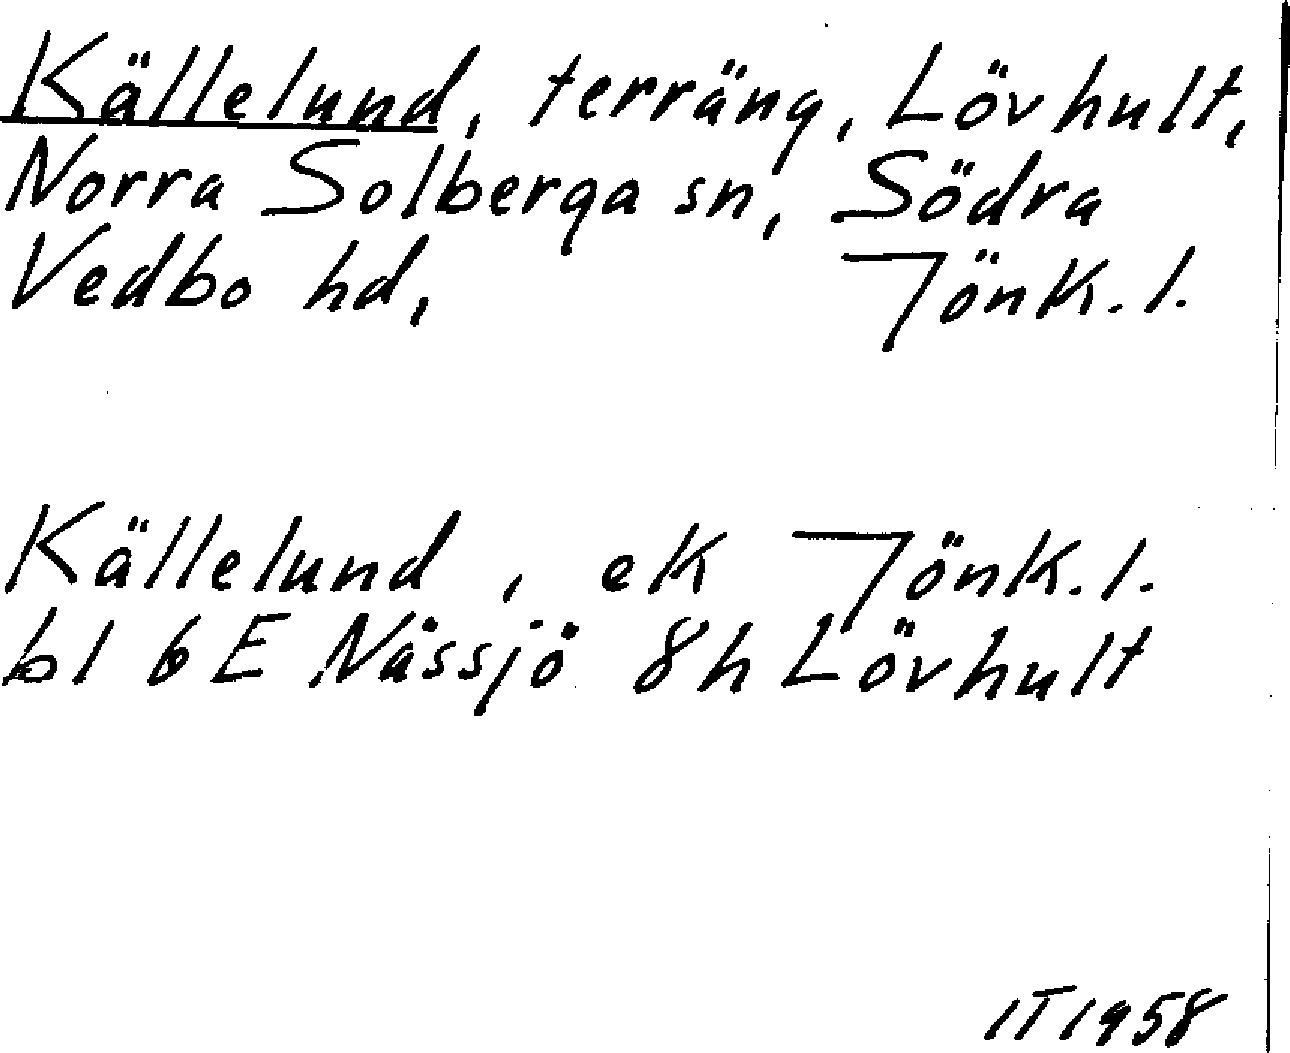 Källelund, terräng, Lövhult,
Norra Solberga sn, Södra
Vedbo hd, Jönk. l.
Källelund, ek Jönk. l.
bl 6 E Nässjö 8h Lövhult
IT 1958